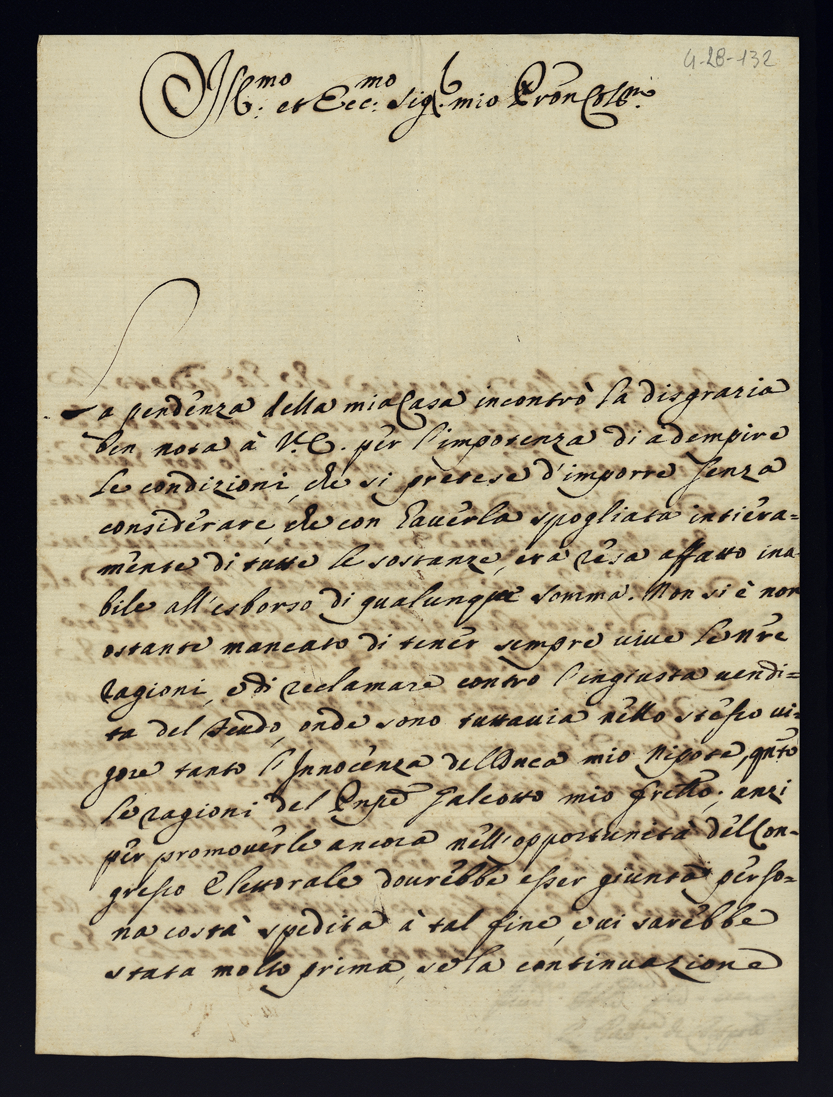 4-28-132
Ill.mo et Ecc.mo Sig.r mio Pron Col.mo
La pendenza della mia Casa incontrò la disgrazia
ben nota à V.E. per l'impotenza di adempire
le condizioni, che si pretese d'imporre senza
considerare, che con haverla spogliata intiera=
mente di tutte le sostanze, era resa affatto ina=
bile all'esborso di qualunque somma. Non si è non
ostante mancato di tener sempre vive le nre
ragioni, e di reclamare contro l'ingiusta vendi=
ta del feudo, onde sono tuttavia nello stesso vi=
gore tanto l'Innocenza del Duca mio Nipote, qnto
le ragioni del Galeotto mio frello; anzi
per promoverle ancora nell'opportunità del Con=
gresso Elettorale dourebbe esser giunta perso=
na costà spedita à tal fine, e vi sarebbe
stata molto prima, se la continuazione